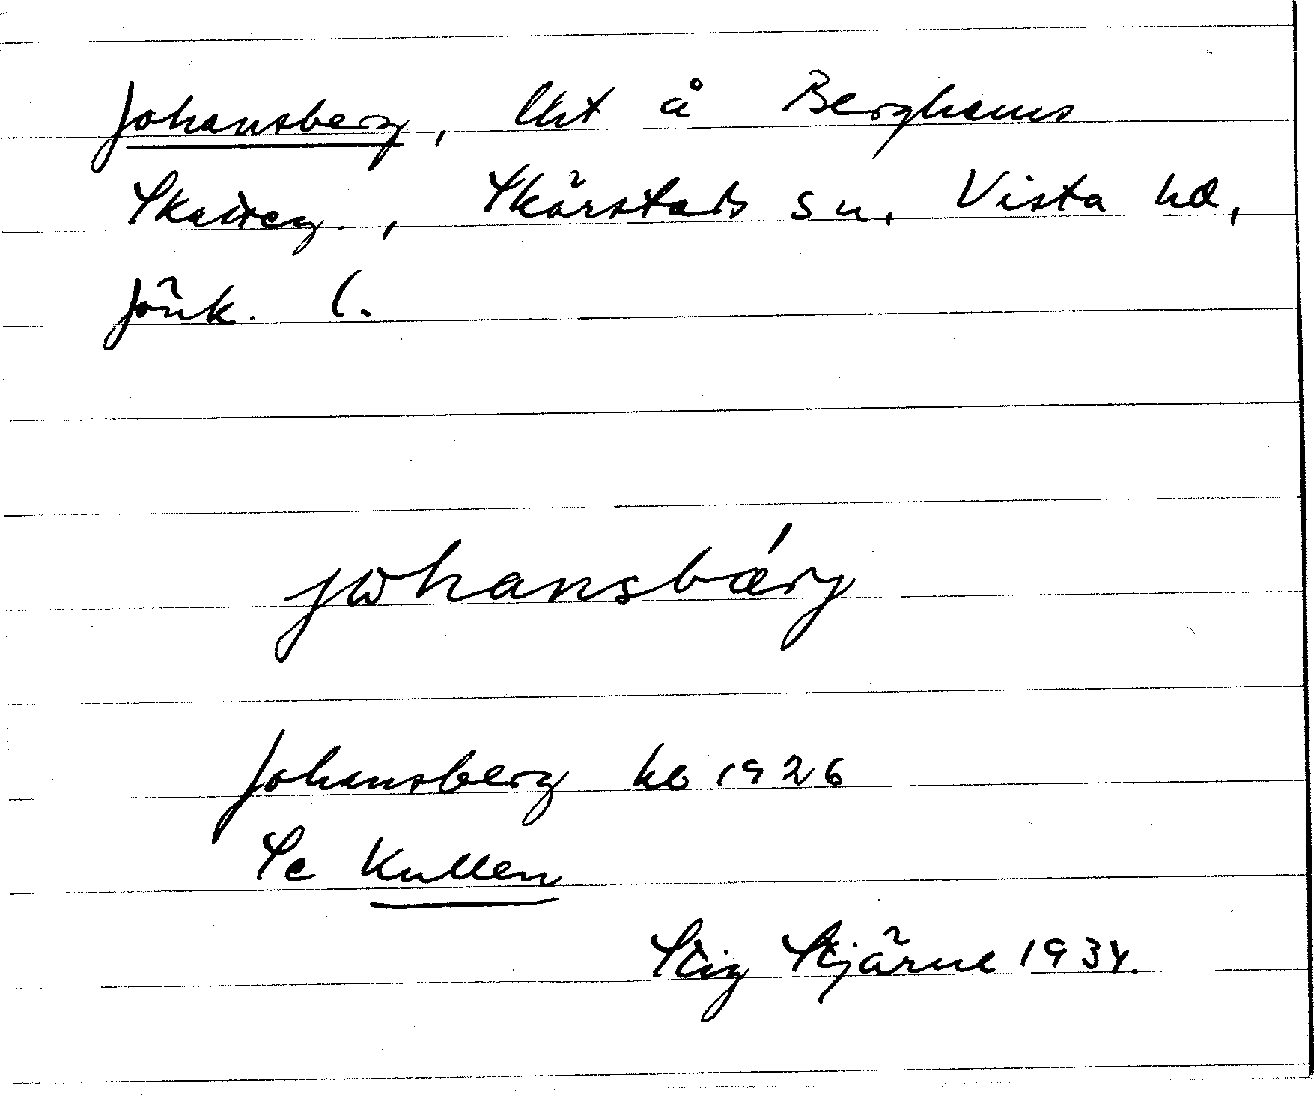 Johansberg, lht å Berghems
Skatteg., Skärstads sn, Vista hd,
Jönk. l.
johansbǽrj
Johansberg hb 1926
Se Kullen
Stig Stjärne 1934.